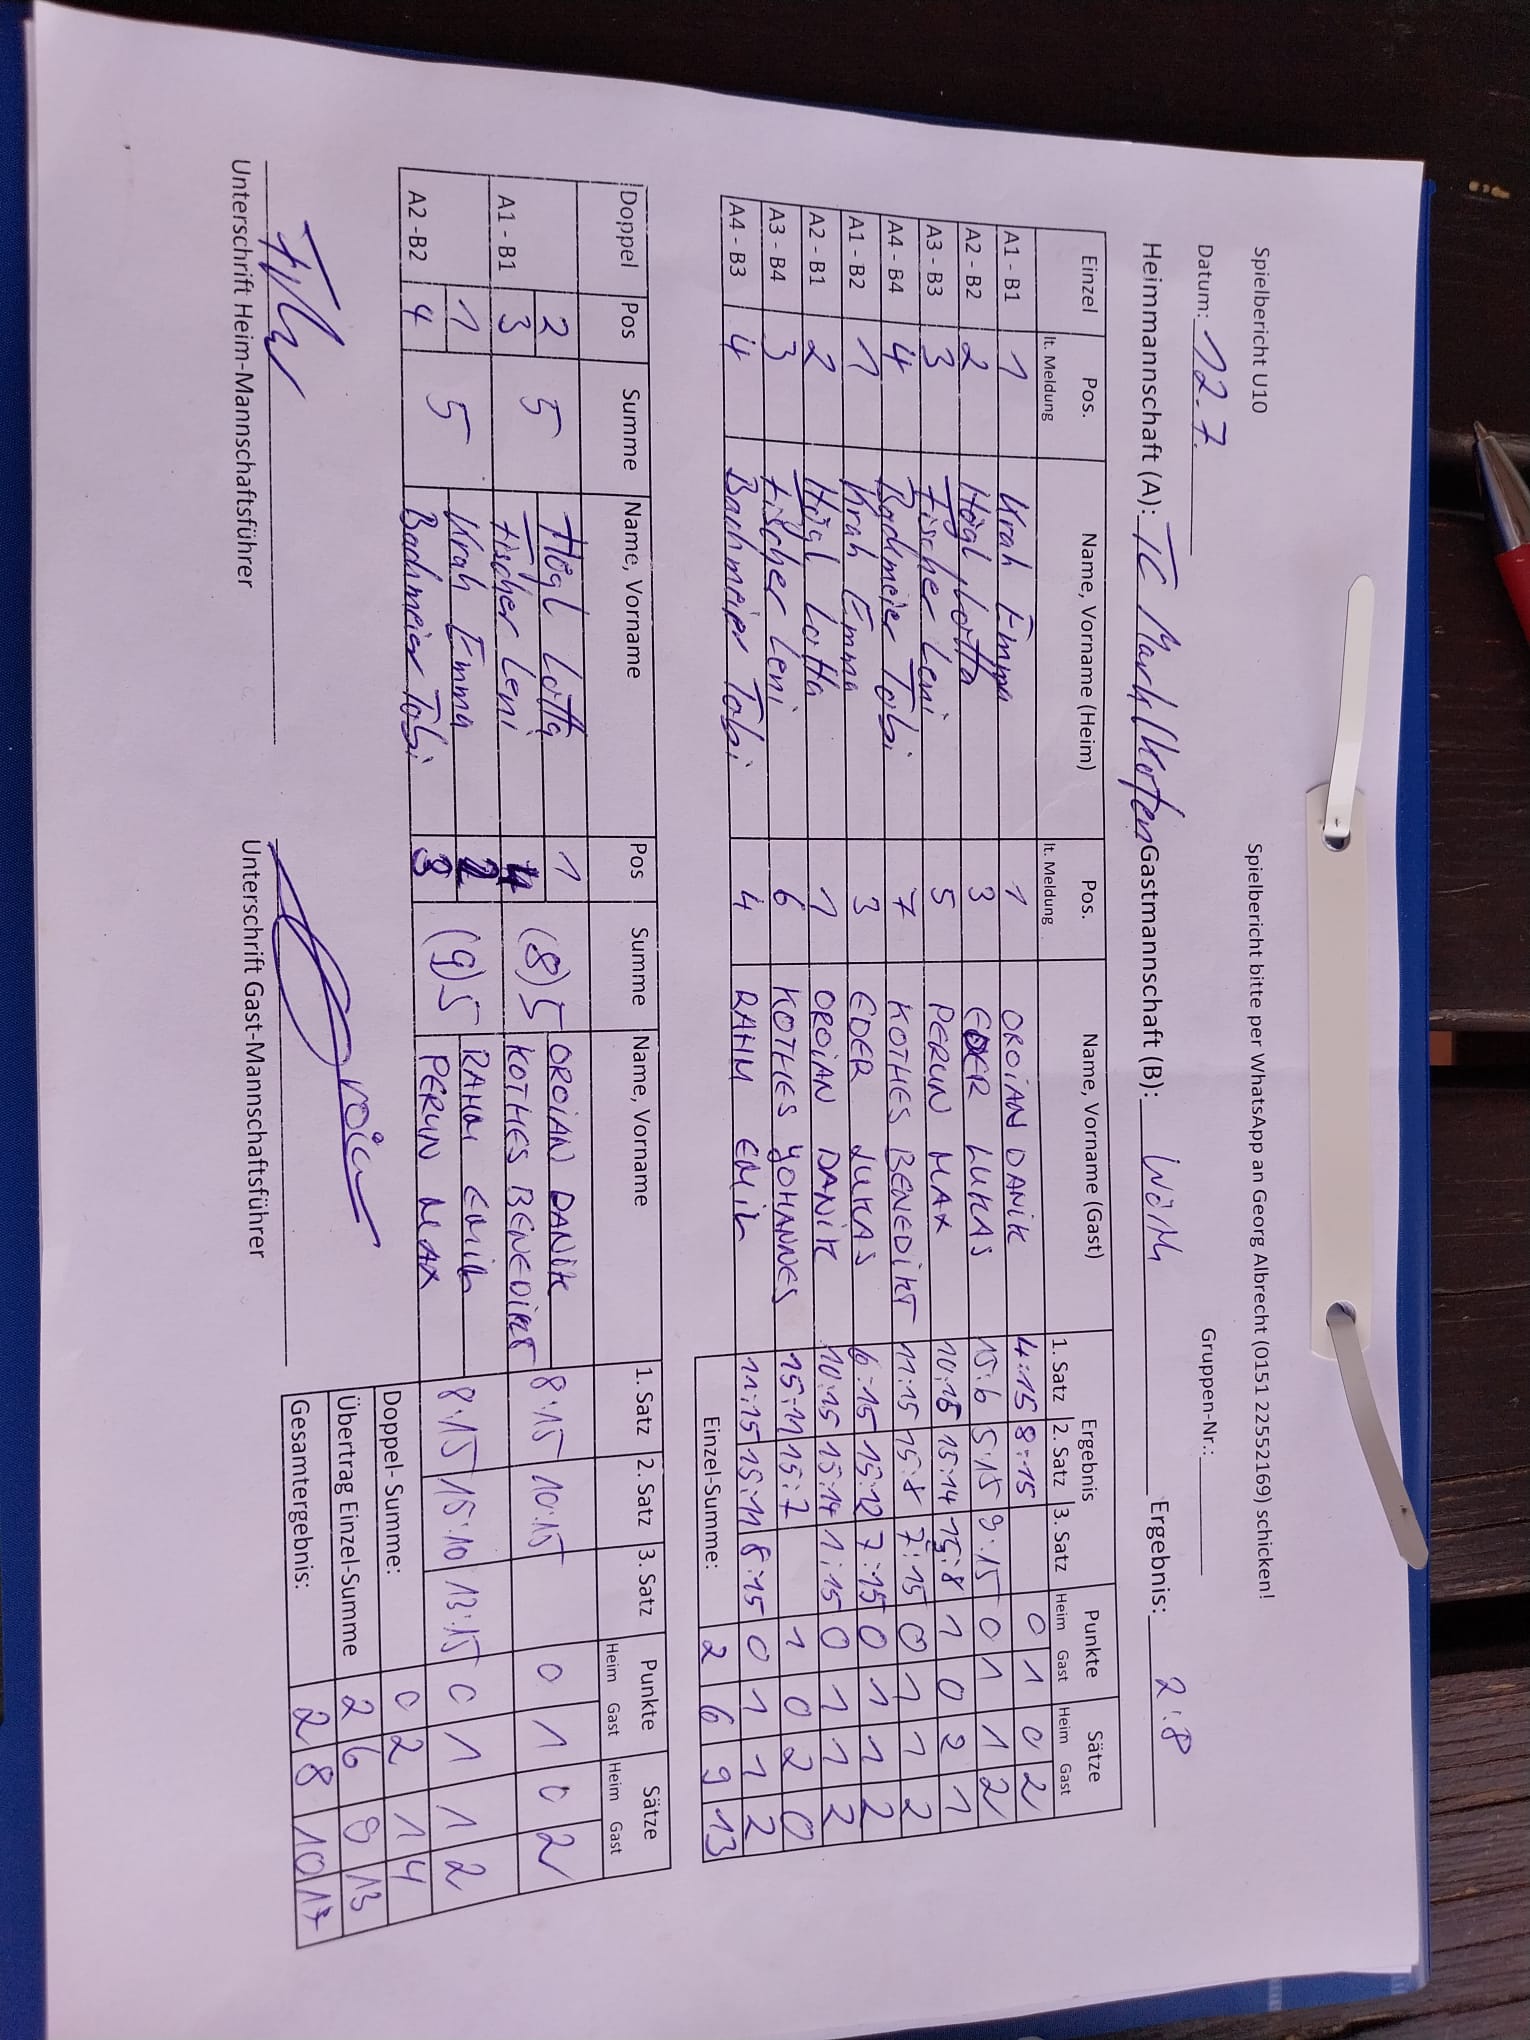 Spielbericht U10 Spielbericht bitte per WhatsApp an Georg Albrecht (0151 22552169) schicken!
Datum: 12.7. Gruppen-Nr.:
Heimmannschaft (A): TC Markl Kofen Gastmannschaft (B): Wörth Ergebnis: 2:8
Einzel Pos. lt. Meldung Name, Vorname (Heim) Pos. lt. Meldung Name, Vorname (Gast) Ergebnis 1. Satz 2. Satz 3. Satz Punkte Heim Gast Sätze Heim Gast
A1 - B1 1 Krah Emma 1 OROIAN DANIK 4:15 8:15 0 1 0 2
A2 - B2 2 Högl Lotta 3 EDER LUKAS 15:6 5:15 9:15 0 1 1 2
A3 - B3 3 Fischer Leni 5 PERUN MAX 10:15 15:14 15:8 1 0 2 1
A4 - B4 4 Bachmeier Tobi 7 KOTHES BENEDIKT 11:15 15:8 7:15 0 1 1 2
A1 - B2 1 Krah Emma 3 EDER LUKAS 6:15 15:12 7:15 0 1 1 2
A2 - B1 2 Högl Lotta 1 OROIAN DANIK 10:15 15:14 1:15 0 1 1 2
A3 - B4 3 Fischer Leni 6 KOTHES YOHANNES 15:11 15:7 1 0 2 0
A4 - B3 4 Bachmeier Tobi 4 RAHM EMIL 11:15 15:11 8:15 0 1 1 2
Einzel-Summe: 2 6 9 13
Doppel Pos Summe Name, Vorname Pos Summe Name, Vorname 1. Satz 2. Satz 3. Satz Punkte Heim Gast Sätze Heim Gast
A1 - B1 2 5 Högl Lotta 1 (8) 5 OROIAN DANIK 8:15 10:15 0 1 0 2
3 Fischer Leni 4 KOTHES BENEDIKT
A2 - B2 1 5 Krah Emma 2 (9) 5 RAHM EMIL 8:15 15:10 13:15 0 1 1 2
4 Bachmeier Tobi 3 PERUN MAX
Doppel- Summe: 0 2 1 4
Übertrag Einzel-Summe 2 6 9 13
Gesamtergebnis: 2 8 10 17
Unterschrift Heim-Mannschaftsführer Unterschrift Gast-Mannschaftsführer